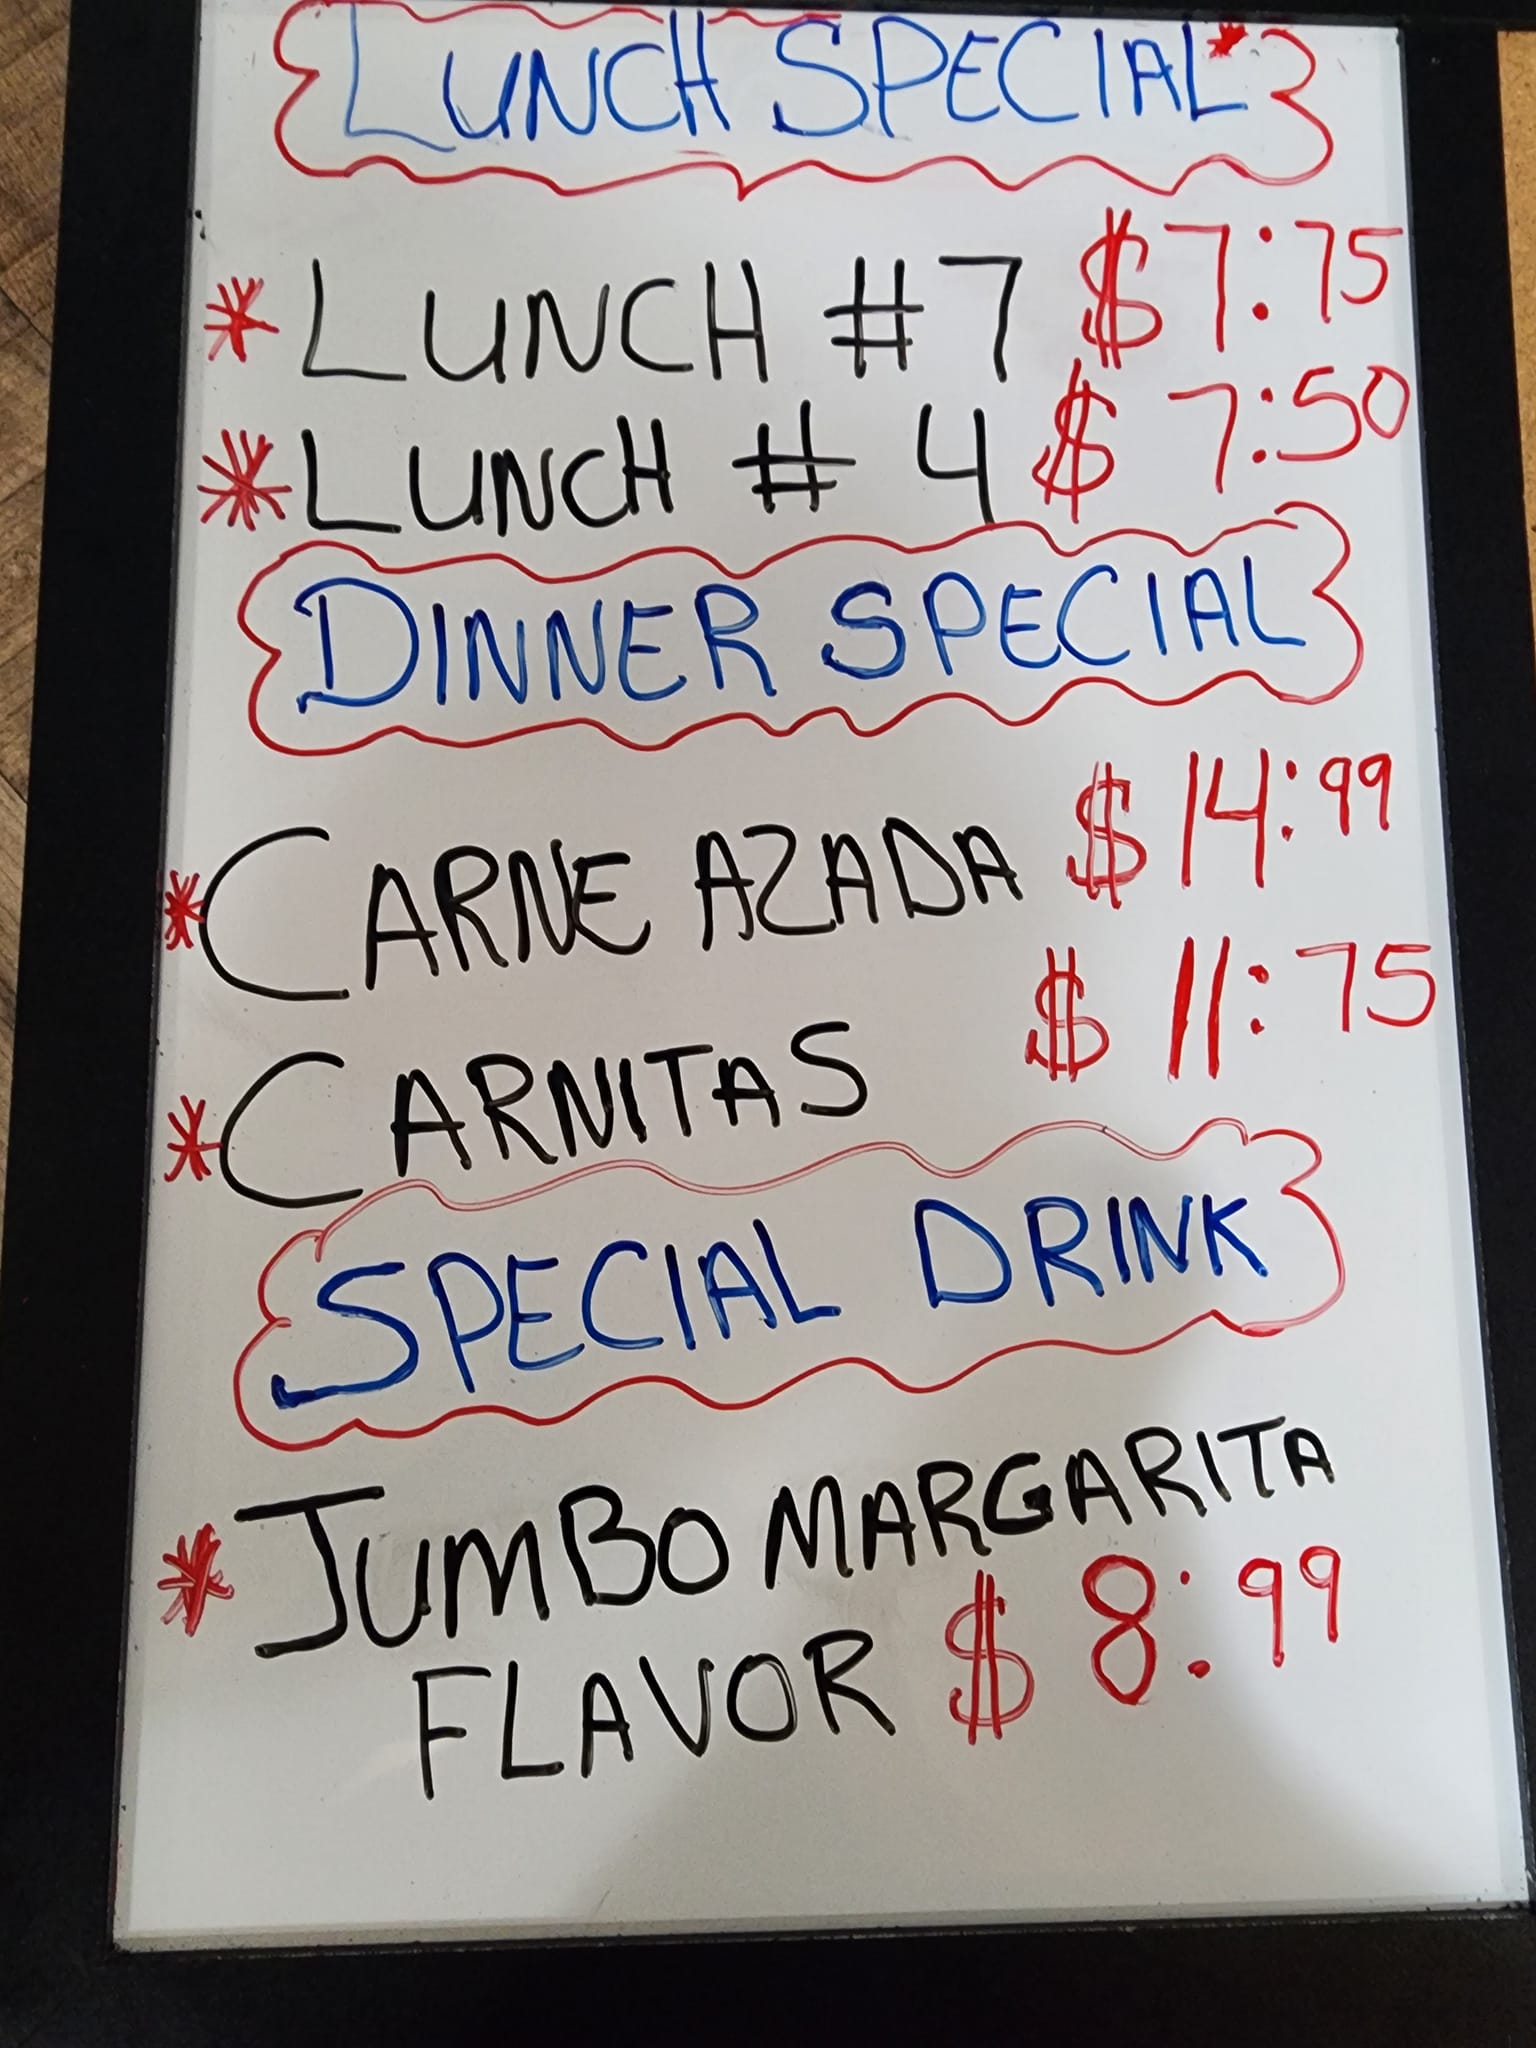 LUNCH SPECIAL*
* LUNCH #7 $7:75
* LUNCH # 4 $ 7:50
DINNER SPECIAL
* CARNE AZADA $14:99
* CARNITAS $ 11:75
SPECIAL DRINK
* JUMBO MARGARITA
FLAVOR $ 8:99